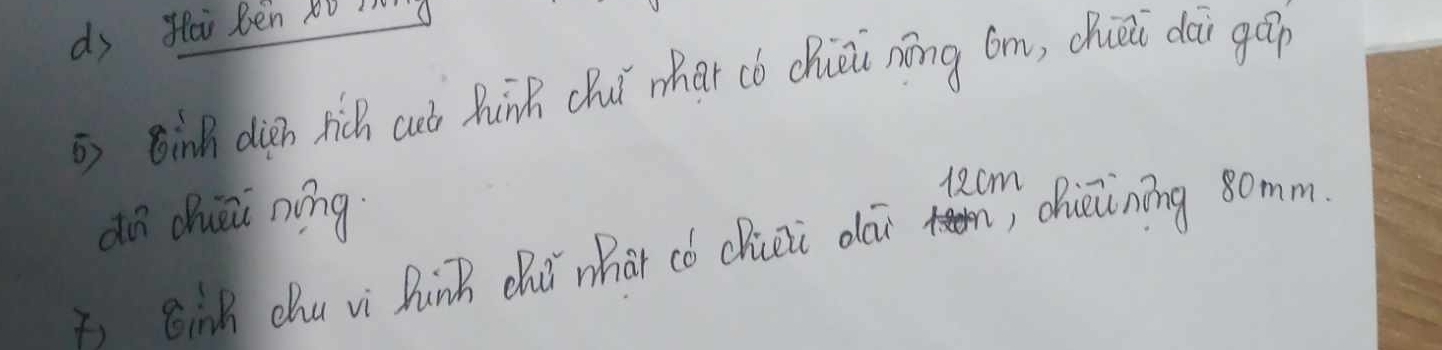 d) Hai bên
6) Tính diện tích của hình chữ nhật có chiều rộng 6m, chiều dài gấp
đôi chiều rộng.
7) Tính chu vi hình chữ nhật có chiều dài 12cm, chiều rộng 80mm.